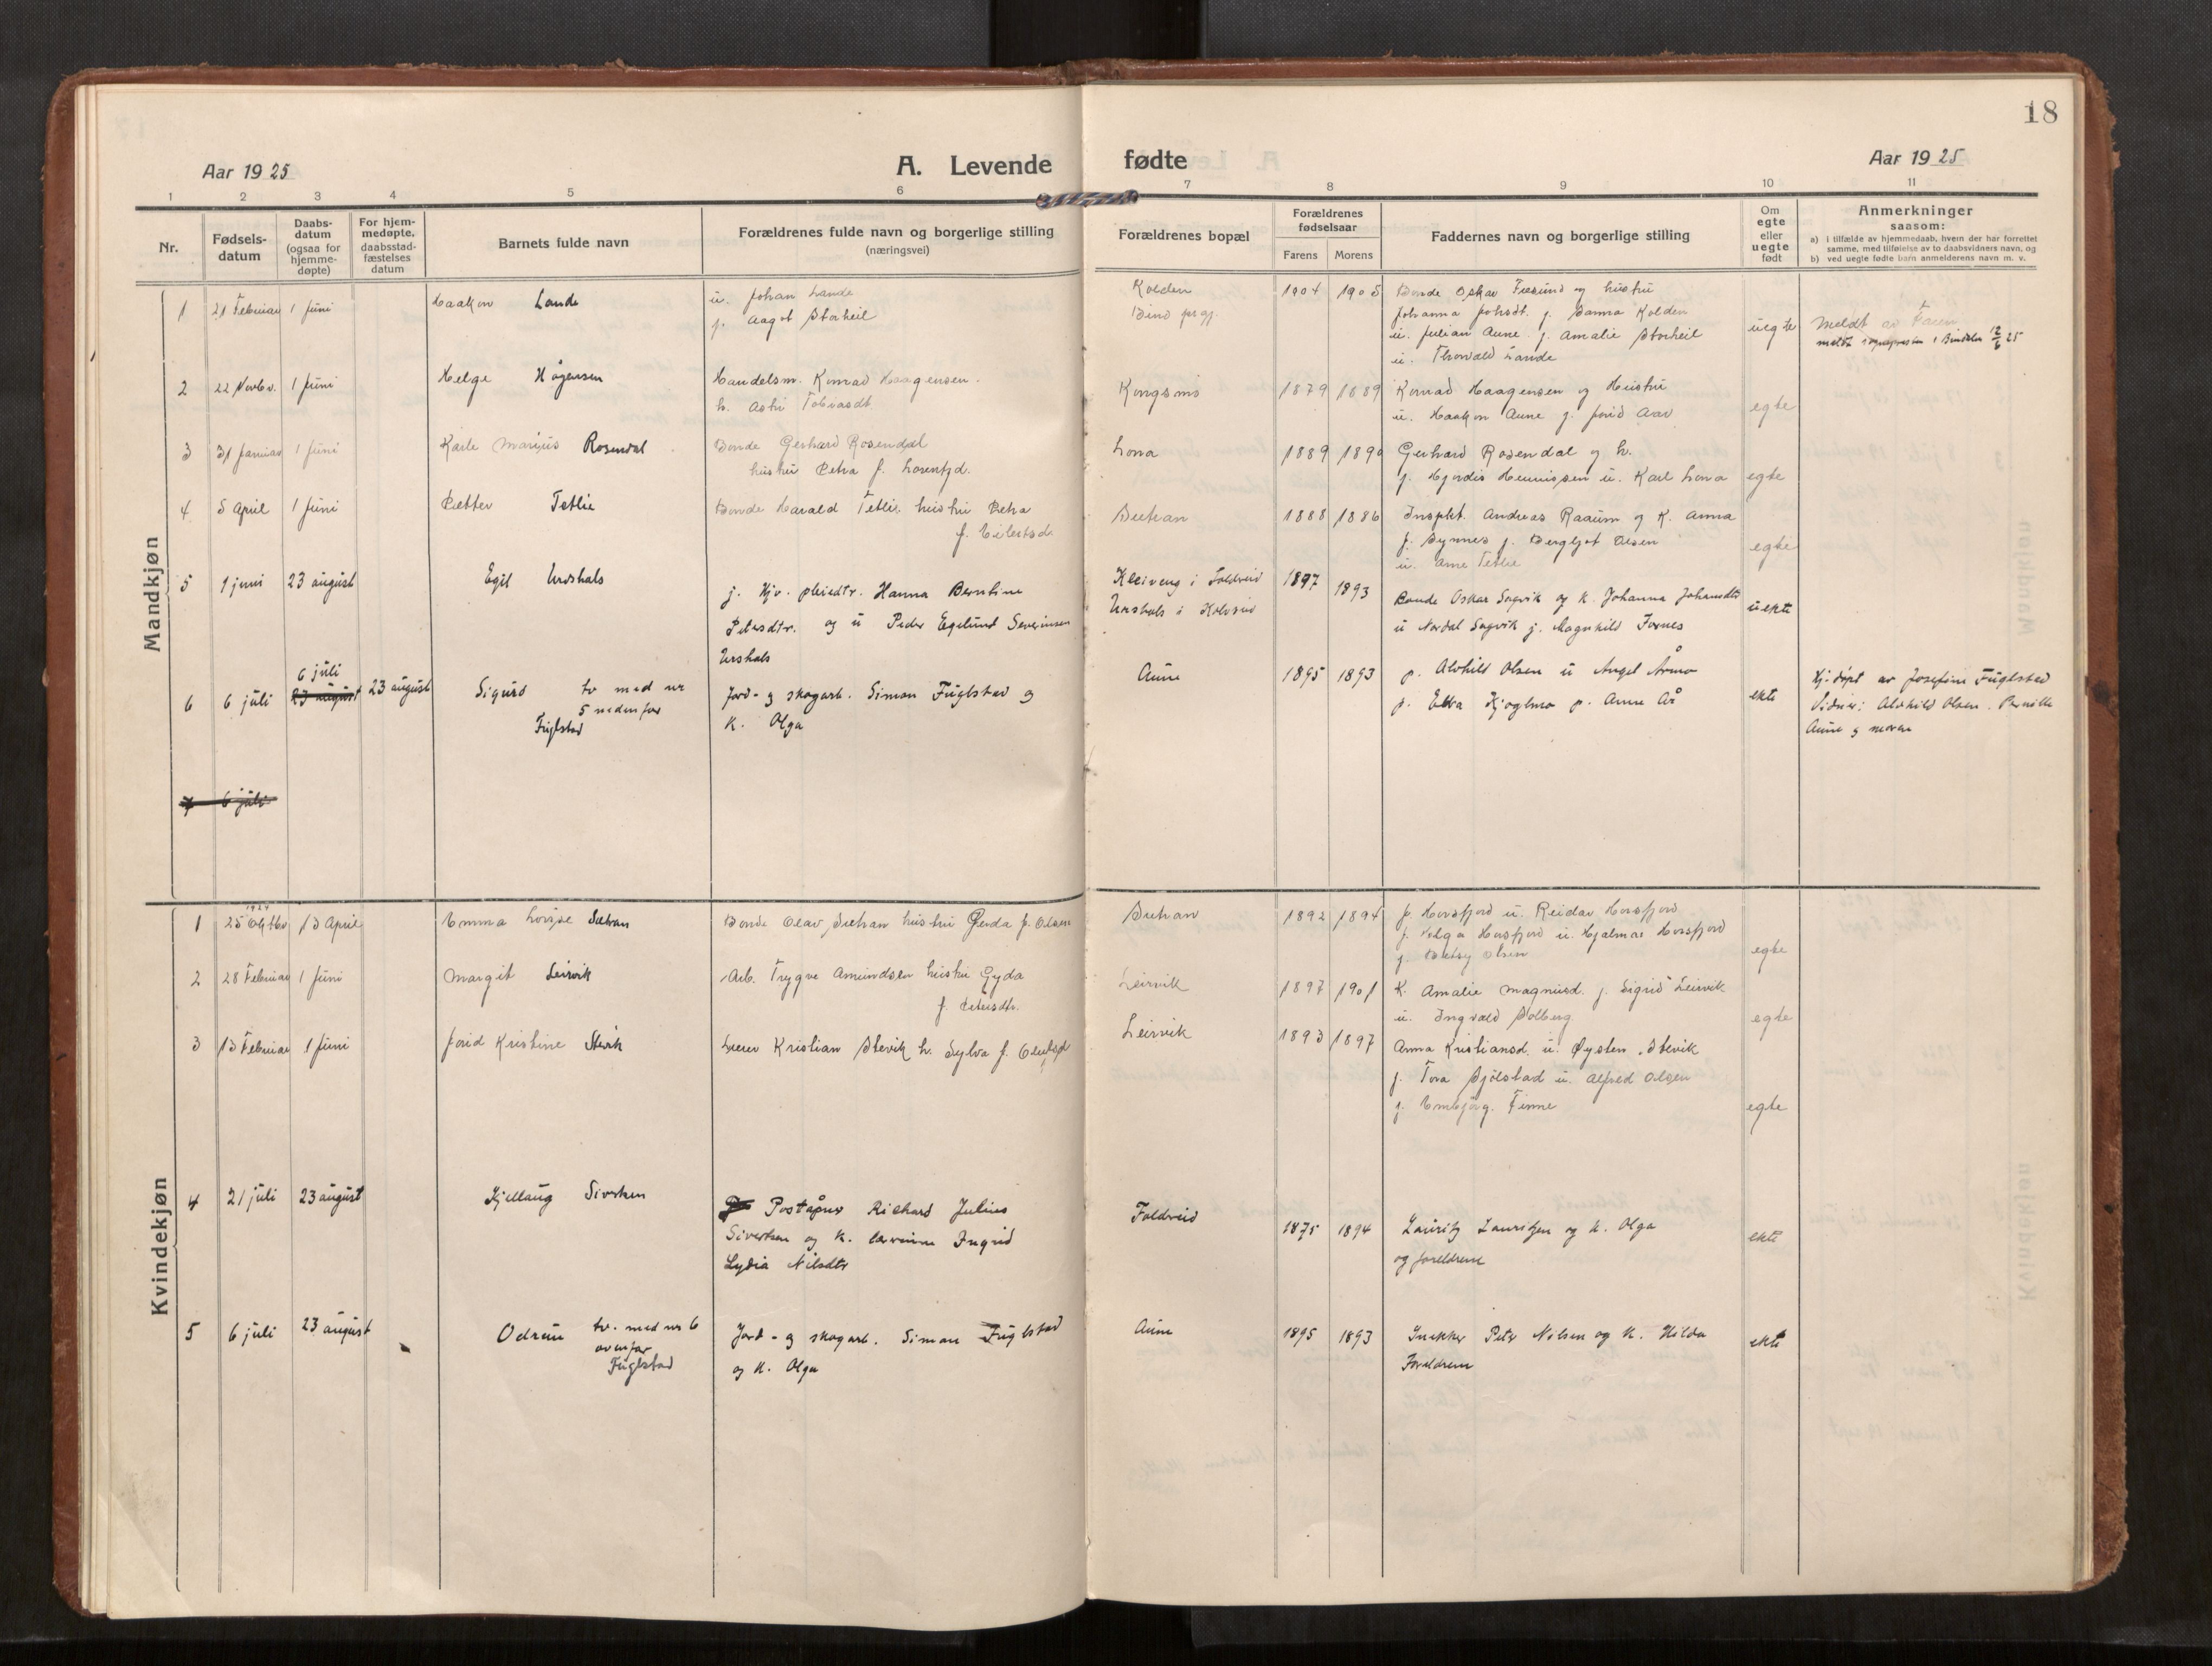 18
Aar 1925
A. Levende fødte
Aar 1925
1 2 3 4 5 6 7 8 9 10 11
Nr.
Fødsels-
datum
Daabs-
datum
(ogsaa for
hjemme-
døpte)
For hjem-
medøpte,
daabsstad-
fæstelses
datum
Barnets fulde navn
Forældrenes fulde navn og borgerlige stilling
(næringsvei)
Forældrenes bopæl
Forældrenes
fødselsaar
Farens Morens
Faddernes navn og borgerlige stilling
Om
egte
eller
uegte
født
Anmerkninger
saasom:
a) i tilfælde av hjemmedaab, hvem der har forrettet
samme, med tilføielse av to daabsvidners navn, og
b) ved uegte fødte barn anmelderens navn m. v.
Mandkjøn
1 21 Februar 1 Juni Haakon Lande
u. Johan Lande
j. Aagot Storheil
Kolden
1904 1905
Bonde Oskar og hustru
Johanna Johsdt. j. Kolden
u. Julian Aune j. Amalie Storheil
u. Thorvald Lande
uegte
Meldt av Faren
12/6 25
2 22 Novbr. 1 Juni Helge Hågensen
Handelsm. Konrad Haagensen.
h. Astri Tobiasdt.
Kongsmo
1879 1889
Konrad Haagensen og Hustru
u. Haakon Aune j. Aar
egte
3 31 Januar 1 Juni Kåre Marius Rosendal
Bonde Gerhard Rosendal
hustru Petra f.
Lona
1889 1890
Gerhard Rosendal og h.
j. Hjordis Hennissen u. Karl Lona
egte
4 5 April 1 Juni Petter Tetlie
Bonde Harald Tetlie hustru Petra
1888 1886
Inspkt. Andreas Raaum og K. Anna
j. Bergljot Olsen
u. Arne Tetlie
egte
5 1 juni 23 august Egil Urdshals
j. Hanna Berntine
Petersdtr. og u Peder Egelund Severinsen
Urshals
Kleiveng i Foldreid
Urshals i
1897 1893
Bonde Oskar Sagvik og K. Johanna Johansdtr
u Nordal Sagvik j. Magnhild Fornes
uekte
6 6 juli
6 juli
23 august
23 august
Sigurd tv med nr
5 nedenfor
Fuglstad
Jord- og skogarb. Simon Fuglstad og
K. Olga
Aune
1895 1893
p. Alvhild Olsen u
p. Anne Aå
ekte
Hj. døpt av Josefine Fuglstad
Vidner: Alvhild Olsen. Pernille
Aune og moren
7 6 juli
Kvindekjøn
1 1924
25 Oktbr 13 April Emma Lovise Sætran
Bonde Olav Sætran hustru Gerda f. Olsen
Sætran
1892 1894
j. Horsfjord u. Reidar Horsfjord
j. Helga Horsfjord u. Hjalmar Horsfjord
j. Betsy Olsen
egte
2 28 Februar 1 Juni Margit Leirvik
Arb. Trygve Amundsen hustru Gyda
f. Petersdtr.
Leirvik
1897 1901
K. Amalie Magnusd. j. Sigrid Leirvik
u. Ingvald Solberg
egte
3 13 Februar 1 Juni Jorid Kristine Stevik
Lærer Kristian Stevik h. Sylva f.
Leirvik
1893 1897
Anna Kristiansd. u. Øysten Stevik
j. Tora Sjølstad u. Alfred Olsen
j. Finne
egte
4 21 juli 23 august Kjellaug Sivertsen
Poståpner Rickard Julius
Sivertsen og K. lærerinne Ingrid
Lydia Nilsdtr
Foldreid
1875 1894
Lauritz Lauritzen og K. Olga
og foreldrene
ekte
5 6 juli 23 august Odrun tv. med nr 6
ovenfor
Fuglstad
Jord- og skogarb. Simon Fuglstad
og K. Olga
Aune
1895 1893
Snekker Peter Nilsen og K. Hilda
Foreldrene
ekte